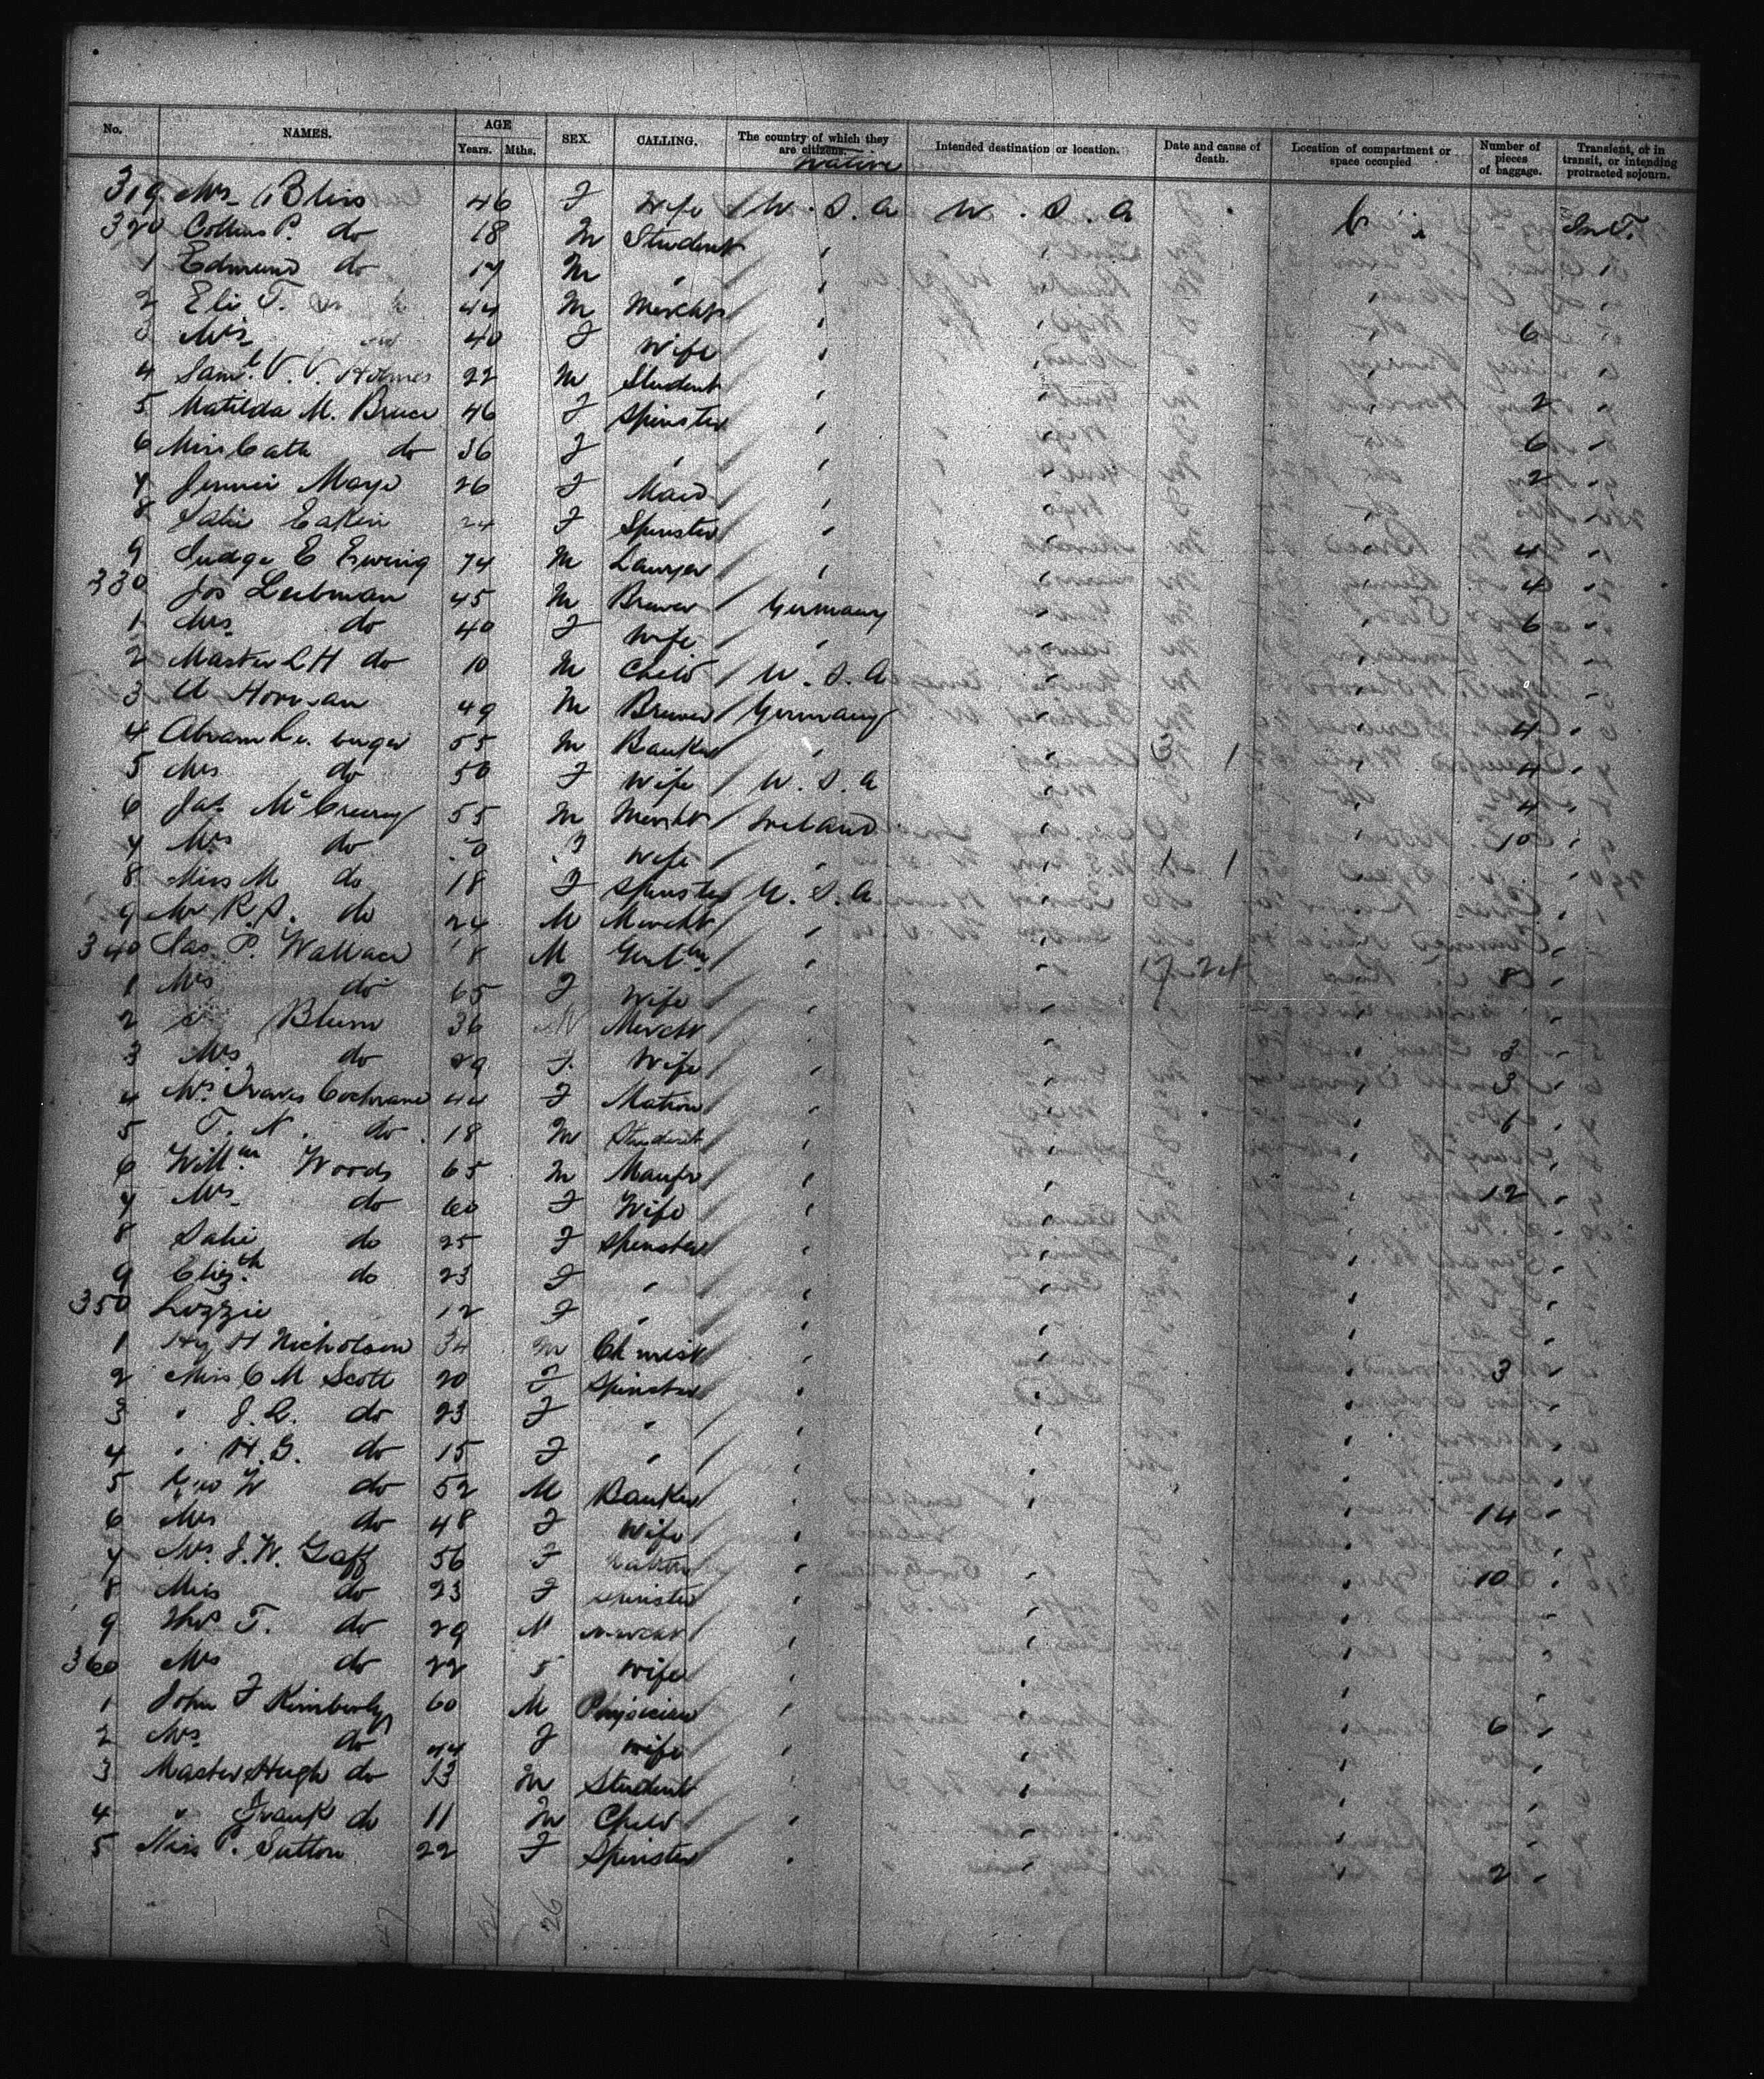 No. NAMES. AGE Years. Mths. SEX. CALLING. The country of which they are citizens. Native Intended destination or location. Date and cause of death. Location of compartment or space occupied Number of pieces of baggage. Transient, or in transit, or intending protracted sojourn.
319 Mrs Bliss 46 F Wife U.S.A U.S.A
320 Collins P. do 18 M Student "
1 Edmund do 17 M " "
2 Eli T. 44 M Mercht "
3 Mrs 40 F Wife " 6
4 Saml. V. V. Holmes 22 M Student "
5 Matilda M. Bruce 46 F Spinster " 2
6 Miss Cath do 36 F " " 6
7 Jennie Mayo 26 F Maid " 2
8 Salie Eakin 24 F Spinster "
9 Judge E Ewing 74 M Lawyer " 4
330 Jos Leibman 45 M Brewer Germany 4
1 Mrs do 40 F Wife " 6
2 Master L H do 10 M Child U.S.A
3 49 M Brewer Germany 4
4 Abram 55 M Banker " 4
5 Mrs do 50 F Wife U.S.A 4
6 Jas McCreery 55 M Mercht Ireland 10
7 Mrs do F Wife "
8 Miss M do 18 F Spinster U.S.A
9 Mr R.S. do 24 M Mercht "
340 Jas. P. Wallace M Gentlm " 8
1 Mrs do 65 F Wife "
2 Blum 36 M Mercht " 3
3 Mrs do 29 F Wife " 3
4 Mrs Travis Cochrane 44 F Matron " 1
5 T. N. do 18 M Student "
6 Willm Woods 65 M Manufr " 12
7 Mrs do 60 F Wife "
8 Salie do 25 F Spinster "
9 Elizth. do 23 F " "
350 Lizzie " 12 F " "
1 Hy H Nicholson 34 M Chemist " 3
2 Miss C M Scott 20 F Spinster "
3 " J. L. do 23 F " "
4 " H. G. do 15 F " "
5 Geo W do 52 M Banker " 14
6 Mrs do 48 F Wife "
7 Mrs. J. W. Gaff 56 F Matron " 10
8 Miss do 23 F Spinster "
9 Thos T. do 29 M Mercht "
360 Mrs do 22 F Wife "
1 John F Kimberly 60 M Physician " 6
2 Mrs do 44 F Wife "
3 Master Hugh do 13 M Student "
4 " Frank do 11 M Child "
5 Miss P. Sutton 22 F Spinster " 2